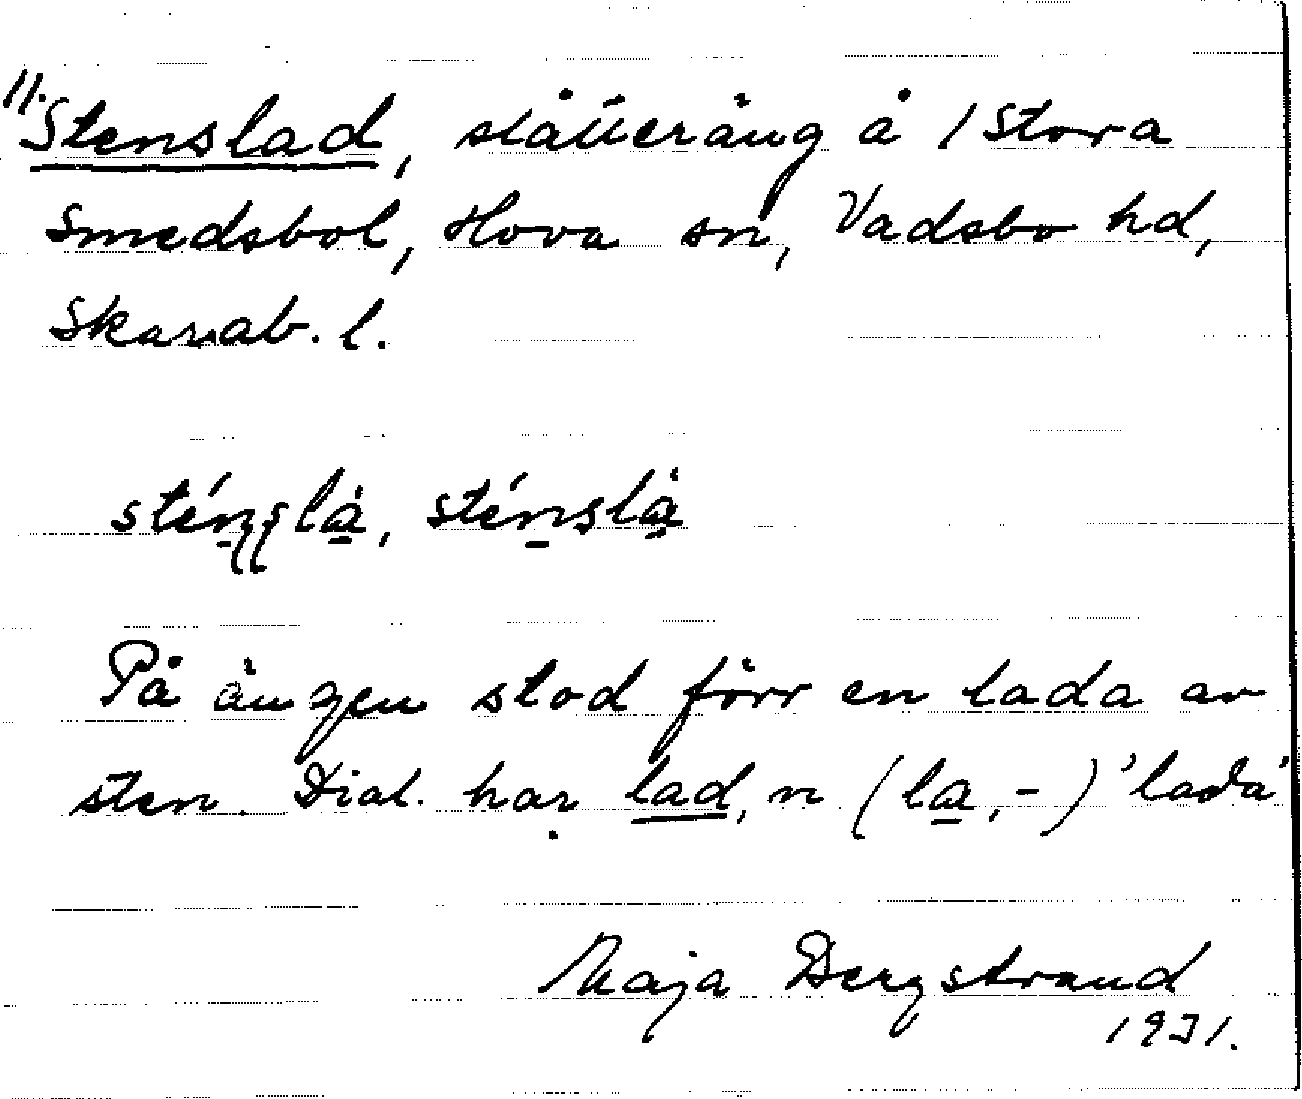 11. Stenslad, slåtteräng å 1 Stora
Smedsbol, Hova sn, Vadsbo hd,
Skarab. l.
sténslà, sténslà
På ängen stod förr en lada av
sten. Dial. har lad, n (la, -) 'lada'
Maja Bergstrand
1931.